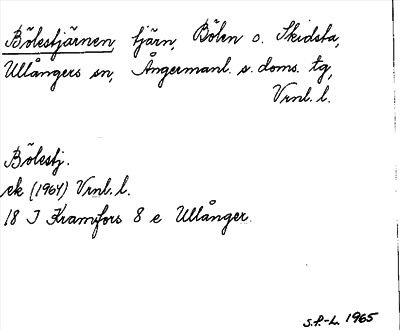 Bölestjärnen, tjärn, Bölen o. Skidsta,
Ullångers sn, Ångermanl. s. doms. tg,
Vrnl. l.
Bölestj.
ek (1964) Vrnl. l.
18 I Kramfors 8 e Ullånger.
S.P.-L. 1965